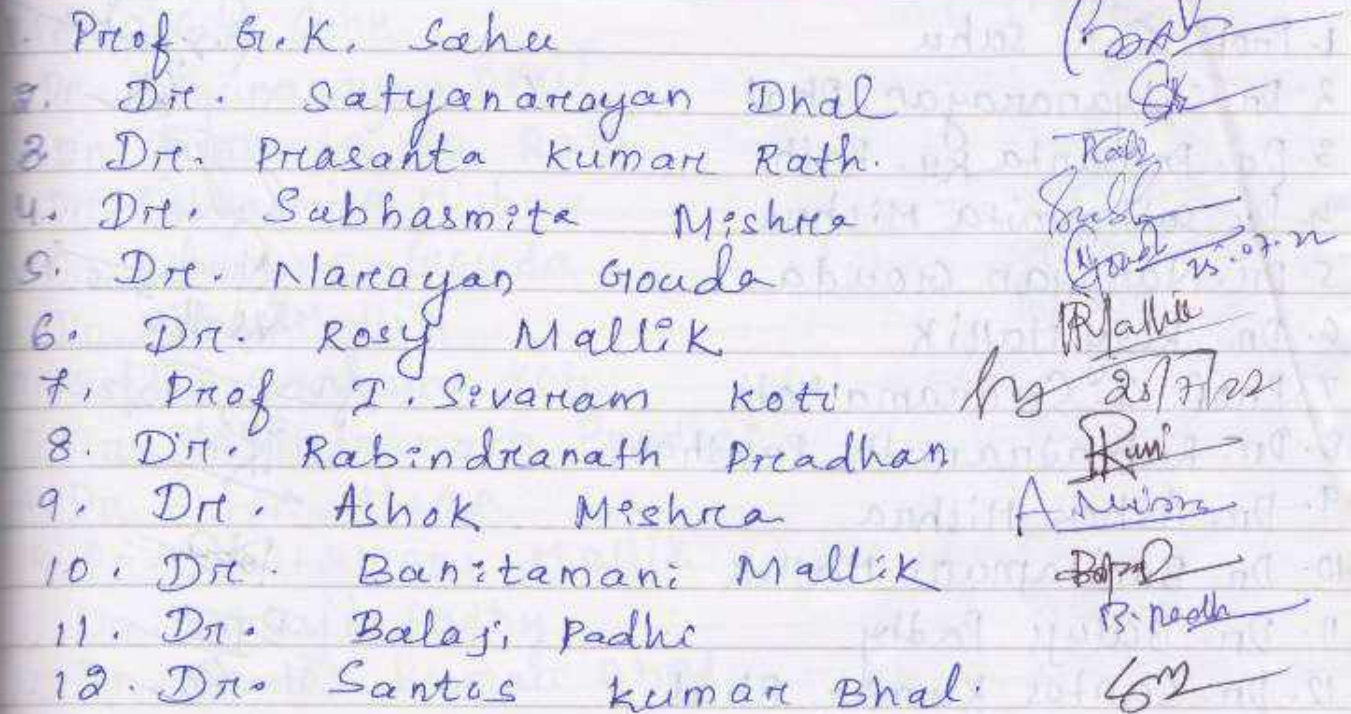 Prof. G.K. Sahu
2. Dr. Satyanarayan Dhal
3 Dr. Prasanta Kumar Rath. Rath
4. Dr. Subhasmita Mishra
5. Dr. Narayan Gouda 25.07.22
6. Dr. Rosy Mallik RMallik
7. Prof I. Sivaram Koti 25/7/22
8. Dr. Rabindranath Pradhan
9. Dr. Ashok Mishra A Misra
10. Dr. Banitamani Mallik
11. Dr. Balaji Padhi B. Padhi
12. Dr. Santos Kumar Bhal.